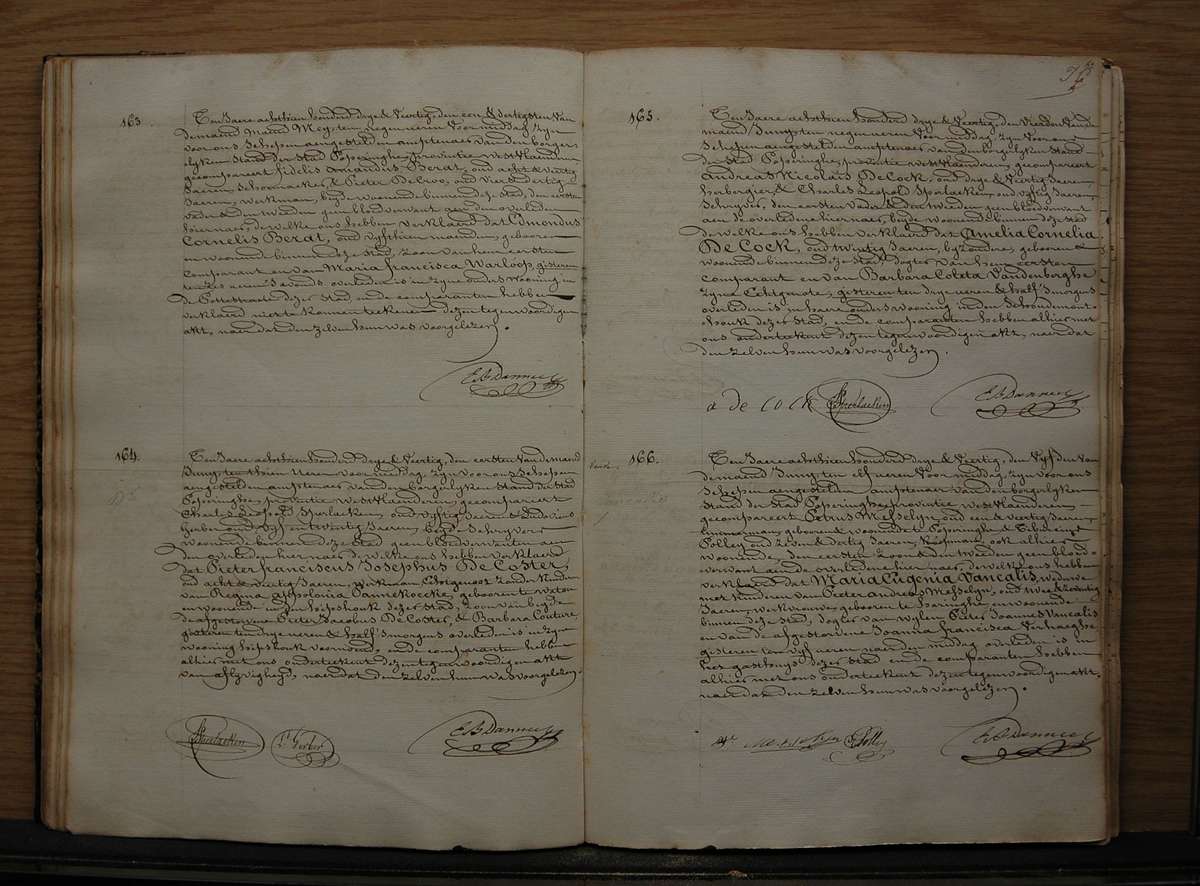 163.
Ten Jaere achthien honderd drye & Veertig, den een & dertigsten Van
de maend Meÿ, ten negen uren Voor middag zyn
voor ons Schepen aengestelden amptenaer van den borger-
lyken Stand der Stad Poperinghe, provintie WestVlaenderen
gecompareert fidelis Amandus Berat, oud acht & veertig
Jaeren, Schoenmaker, & Pieter DeCroo, oud Vier & dertig
Jaeren, werkman, beyde woonende binnen deze Stad, den eersten
vader & den tweeden geen bloedverwant aen den overleden
hiernaer, de welke ons hebben verklaerd dat Edmondus
Cornelis Berat, oud vyfthien maenden, geboren
en woonende binnen deze Stad, zoon van hem eersten
comparant en van Maria francisca Warloop, gisteren
ten zes uren 's avonds overleden is in zyne ouders wooning in
de Pottestraete dezer Stad, en de comparanten hebben
verklaerd niet te konnen teekenen dezen tegenwoordigen
akt, naer dat den zelven hun was voorgelezen.
E B Danneel
164.
Ten Jaere achthien honderd drye & Veertig, den eersten van de maend
Juny, ten thien Uren voor middag, zyn voor ons Schepen
aengestelden amptenaer van den borgerlyken Stand der Stad
Poperinghe, provintie WestVlaenderen, gecompareert
Charles Leopold Sporlacken, oud vyftig Jaeren & Ludovicus
Gerber oud Vyf en twintig Jaeren, beyde Schryvers
woonende binnen deze Stad geen bloedverwanten aen
den overleden hier naer, de welke ons hebben verklaerd
dat Pieter franciscus Josephus De Coster,
oud acht & veertig Jaeren, werkman, Echtgenoot zonder kinderen
van Regina Appolonia Pannekoecke, geboren te Waton
en woonende in den hipshoek dezer Stad, zoon van beyde
de afgestorvene Pieter Jacobus De Coster, & Barbara Couture,
gisteren ten drye uren & half 's morgens overleden is in zyne
wooning hipshoek voornoemd, en de comparanten hebben
alhier met ons onderteekent dezen tegenwoordigen akt
van aflyvigheyd, naer dat den zelven hun was voorgelezen.
Sporlacken
L. Gerber
E B Danneel
165.
Ten Jaere achthien honderd drye & Veertig, den Vierden van de
maend Juny, ten negen uren Voor middag, zyn Voor ons
Schepen aengestelden amptenaer van den borgerlyken Stand
der Stad Poperinghe, provintie WestVlaenderen, gecompareert
Andreas Nicolaus DeCock, oud drye & Veertig Jaeren,
herbergier, & Charles Leopold Sporlacken, oud vyftig Jaeren,
Schryver, den eersten vader & den tweeden geen bloedverwant
aen de overledene hiernaer, beyde woonende binnen deze Stad
de welke ons hebben verklaerd dat Amelia Cornelia
De Cock, oud twintig Jaeren, byzondere, geboren &
woonende binnen deze Stad, dogter van hem eersten
comparant en van Barbara Coleta Vandenberghe
zyne Echtgenote, gisteren ten drye uren & half 's morgens
overleden is in haere ouders wooning in den Schoudemont-
hoek dezer Stad, en de comparanten hebben alhier met
ons onderteekent dezen tegenwoordigen akt, naer dat
den zelven hun was voorgelezen.
a de Cock
Sporlacken
E B Danneel
166.
Ten Jaere achthien honderd drye & Veertig, den Vyfden van
de maend Juny ten elf uren Voor middag zyn voor ons
Schepen aengestelden amptenaer van den borgerlyken
Stand der Stad Poperinghe provintie WestVlaenderen
gecompareert Petrus Messelyn, oud een & veertig Jaeren,
geboren & woonende te Poperinghe &
Polley, oud zeven & dertig Jaeren, Koopman, ook alhier
woonende, den eersten zoon & den tweeden geen bloed-
verwant aen de overledene hier naer, de welke ons hebben
verklaerd dat Maria Eugenia Vancalis, weduwe
met kinderen van Pieter andreas Messelyn, oud twee & zeventig
Jaeren, werkvrouwe, geboren te haringhe en woonende
binnen deze Stad, dogter van wylen Pieter Joannes Vancalis
en van de afgestorvene Joanna francisca Verhaeghe
gisteren ten vyf uren naer den middag overleden is in
het gasthuys dezer Stad en de comparanten hebben
alhier met ons onderteekent dezen tegenwoordigen akt,
naer dat den zelven hun was voorgelezen.
Messelyn
Polley
E B Danneel